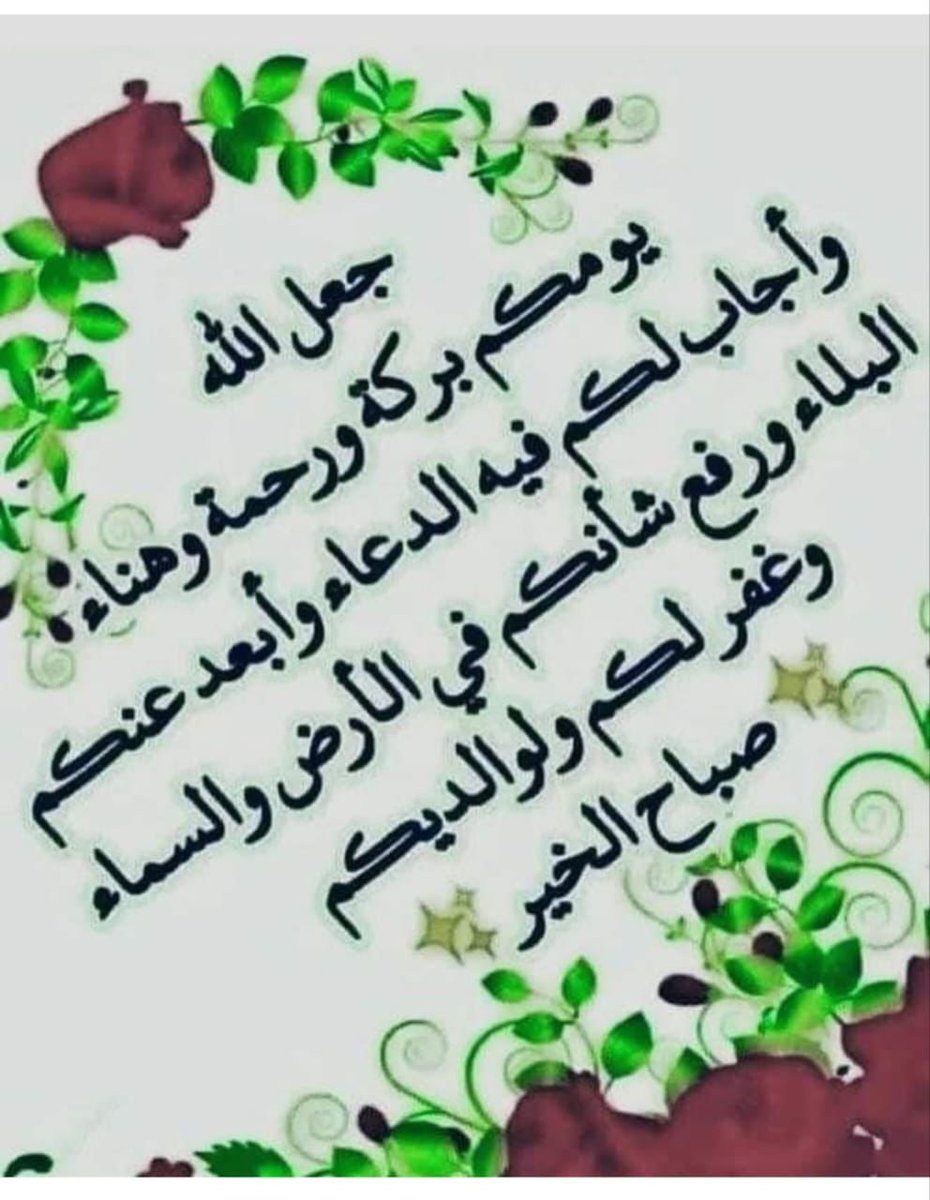 جعل الله
يومكم بركة ورحمة وهناء
وأجاب لكم فيه الدعاء وأبعد عنكم
البلاء ورفع شأنكم في الأرض والسماء
وغفر لكم ولوالديكم
صباح الخير